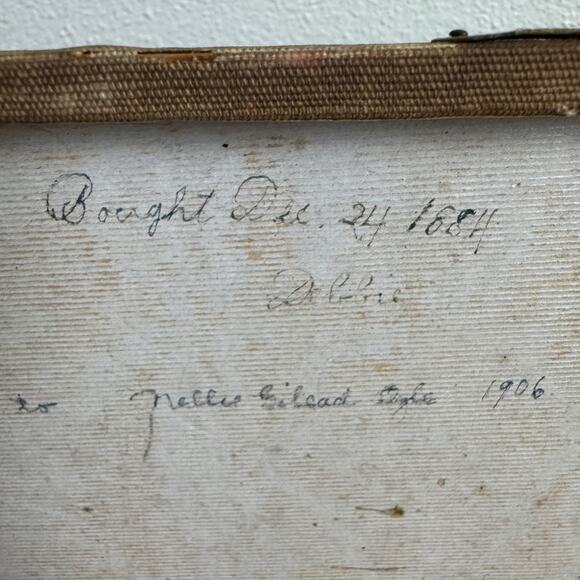 Bought Dec. 24 1884
Debbie
to Nellie Gilead 1906